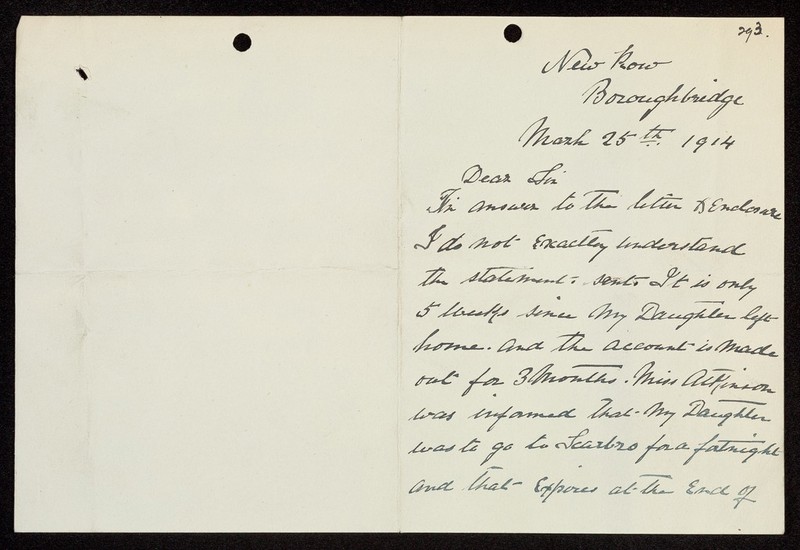 293.
New Row
Boroughbridge
March 25th. 1914
Dear Sir
In answer to the letter & Enclosure
I do not Exactly understand
the statement. sent. It is only
5 weeks since My Daughter left
home. and the account is Made
out for 3 Months. Miss Atkinson
was informed that My Daughter
was to go to Scarbro for a fotnight
and that Expires at the End of